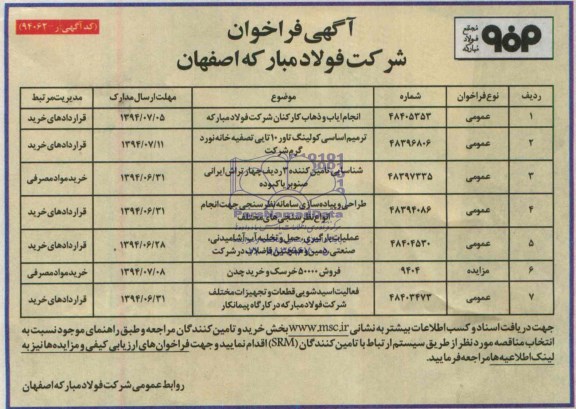 (کد آگهی: ر-۹۴۰۶۲)
مجتمع فولاد مبارکه
آگهی فراخوان
شرکت فولاد مبارکه اصفهان
ردیف نوع فراخوان شماره موضوع مهلت ارسال مدارک مدیریت مرتبط
۱ عمومی ۴۸۴۰۵۳۵۳ انجام ایاب و ذهاب کارکنان شرکت فولاد مبارکه ۱۳۹۴/۰۷/۰۵ قراردادهای خرید
۲ عمومی ۴۸۳۹۶۸۰۶ ترمیم اساسی کولینگ تاور ۱۰ تایی تصفیه خانه نورد گرم شرکت ۱۳۹۴/۰۷/۱۱ قراردادهای خرید
۳ عمومی ۴۸۳۹۷۳۳۵ شناسایی تامین کننده ۳ ردیف چهارتراش ایرانی صنوبر یا کبوده ۱۳۹۴/۰۶/۳۱ خرید مواد مصرفی
۴ عمومی ۴۸۳۹۴۰۸۶ طراحی و پیاده سازی سامانه نظرسنجی جهت انجام انواع نظرسنجی های مختلف ۱۳۹۴/۰۶/۳۱ قراردادهای خرید
۵ عمومی ۴۸۴۰۴۵۳۰ عملیات بارگیری، حمل و تخلیه آب آشامیدنی، صنعتی، زمین و همچنین فاضلاب در شرکت ۱۳۹۴/۰۶/۲۸ قراردادهای خرید
۶ مزایده ۹۴۰۴ فروش ۵۰۰۰۰ خرسک و خرید چدن ۱۳۹۴/۰۷/۰۸ خرید مواد مصرفی
۷ عمومی ۴۸۴۰۳۴۷۳ فعالیت اسیدشویی قطعات و تجهیزات مختلف شرکت فولاد مبارکه در کارگاه پیمانکار ۱۳۹۴/۰۶/۳۱ قراردادهای خرید
جهت دریافت اسناد و کسب اطلاعات بیشتر به نشانی www.msc.ir بخش خرید و تامین کنندگان مراجعه و طبق راهنمای موجود نسبت به
انتخاب مناقصه مورد نظر از طریق سیستم ارتباط با تامین کنندگان (SRM) اقدام نمایید و جهت فراخوان های ارزیابی کیفی و مزایده ها نیز به
لینک اطلاعیه ها مراجعه فرمایید.
روابط عمومی شرکت فولاد مبارکه اصفهان